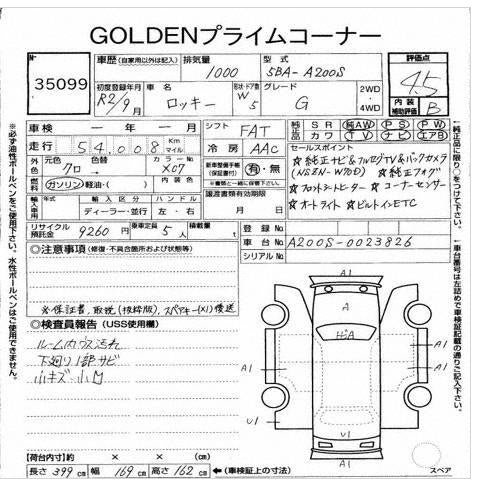 GOLDENプライムコーナー
No.
35099
車歴 (自家用以外は記入)
排気量
1000
型式
5BA-A200S
評価点
4.5
内装補助評価
B
初度登録年月
R2/9月
車名
ロッキー
形状・ドア数
W
5
グレード
G
2WD
4WD
車検 ー年ー月
シフト
FAT
純正品
SR
純AW
PS
PW
カワ
TV
ナビ
エアB
走行 54,008 Km マイル
冷房
AAC
セールスポイント
☆純正ナビ&フルセグTV&バックカメラ
(NSZN-W70D) ☆純正フォグ
☆フロントシートヒーター ☆コーナーセンサー
☆オートライト ☆ビルトインETC
外色
元色
クロ
色替
カラーNo.
X07
新車整備手帳
(保証書付)
有・無
※書類と一緒に保管下さい。
燃料
ガソリン・軽油・( )
内装色
譲渡書類有効期限
月 日
輸入車用
年式
輸入区分
ディーラー・並行
ハンドル
左・右
リサイクル預託金
9260円
乗車定員
5人
積載量
t
登録No.
車台No.
A200S-0023826
シリアルNo.
◎注意事項 (修復・不具合箇所および状態等)
※保証書、取説(抜粋版)、スペアキー(×1)後送
◎検査員報告 (USS使用欄)
ルーム内ハウス汚れ
下廻り1部サビ
小キズ・小凹
A1
A
A1
A1
A1
U1
U1
A1
【荷台内寸】約 × × (cm)
長さ 399 cm 幅 169 cm 高さ 162 cm
←(車検証上の寸法)
スペア
※必ず油性ボールペンをご使用下さい。水性ボールペンはご使用できません。
純正品に限り○をつけて下さい。
車台番号は左詰めで車検証記載の通りご記入下さい。